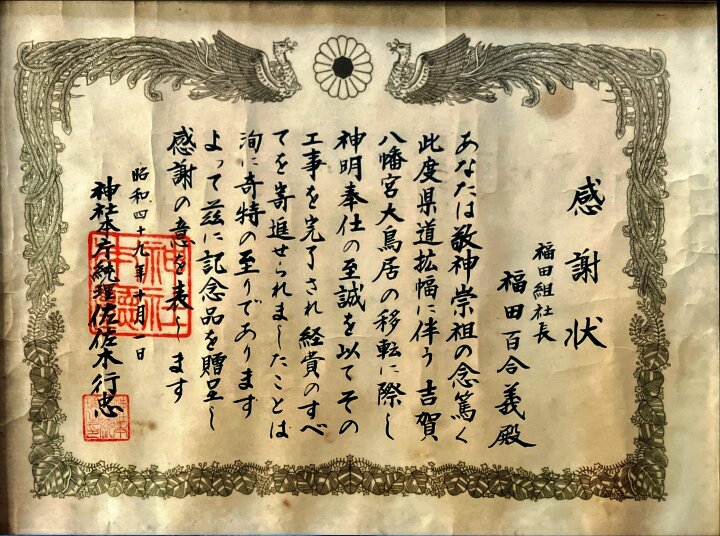 感謝状
福田組社長
福田百合義殿
あなたは敬神崇祖の念篤く
此度県道拡幅に伴う吉賀
八幡宮大鳥居の移転に際し
神明奉仕の至誠を以てその
工事を完了され経費のすべ
てを寄進せられましたことは
洵に奇特の至りであります
よって茲に記念品を贈呈し
感謝の意を表します
昭和四十九年十月一日
神社本庁統理佐佐木行忠